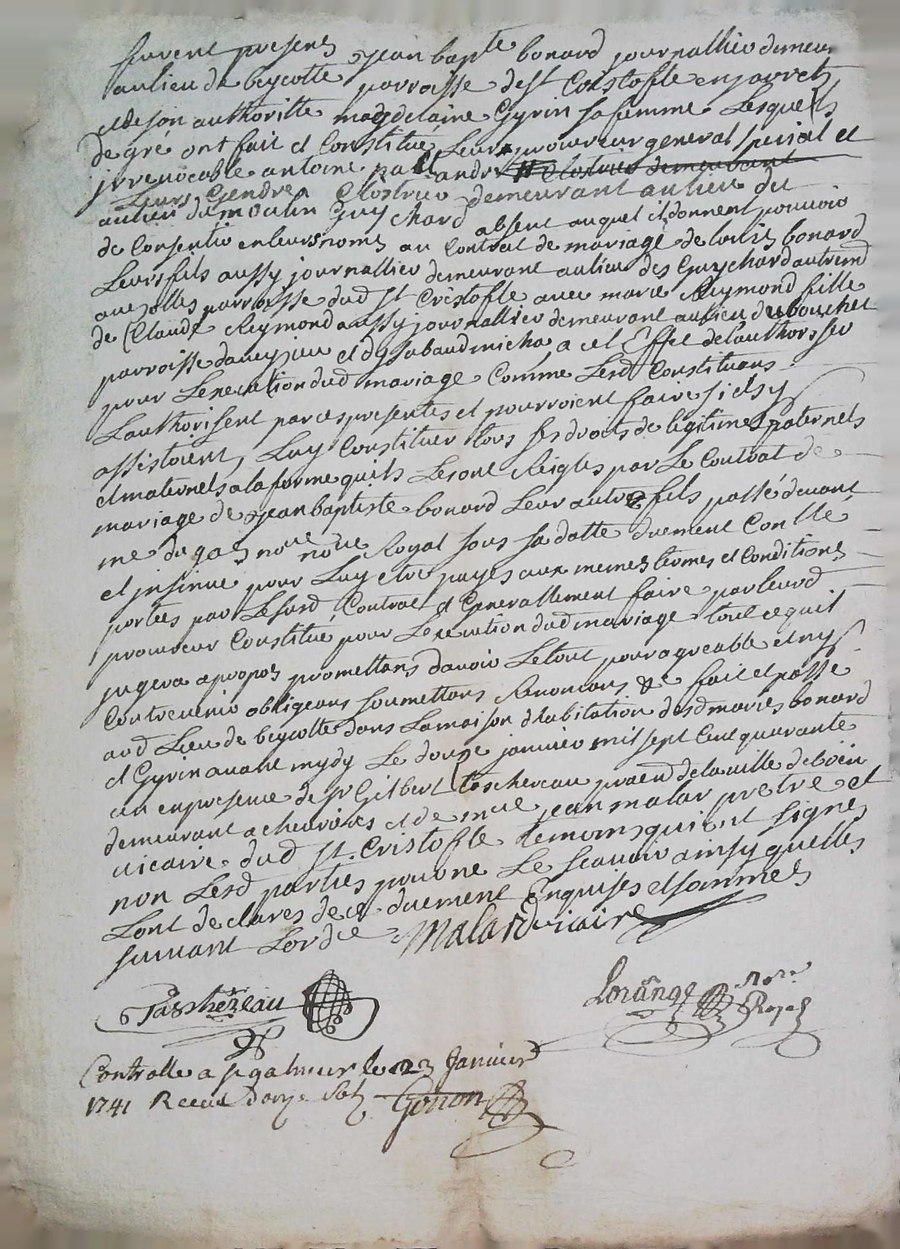 furent presens jean bap^te bonard journallier demeur^t
au lieu de beycotte parroisse de S^t Cristofle en jarret
et de son authoritte magdelaine Gyrin sa femme Lesquels
de gré ont fait et Constitué Leur procureur general special et
jrrevocable antoine andre
Leurs Gendre Clostrier demeurant au lieu du
au lieu du moulin Guychard absent auquel ils donnent pouvoir
de Consentir en leurs noms au Contrat de mariage de Louis bonard
Leurs fils aussy journallier demeurant au lieu des Guychard autremt
aux olles parroisse dud St Cristofle avec marie Reymond fille
de Claude Reymond aussy journallier demeurant au lieu du bouchet
parroisse daveyzieu et dysabaud micha a cet Effet de l'authorisser
pour Lexecution dud mariage Comme Lesd Constituans
Lauthorisent par ces presentes et pourroient faire si els y
assistoient, Luy Constituer tous ses droits de legitimes paternels
et maternels a la forme quils Les ont Reigles par Le Contrat de
mariage de jean baptiste bonard Leur autre fils passé devant
me no^re Royal sous sa datte duement Conllé
et jnsinue pour Luy etre payes aux memes termes et Conditions
portees par Le susd Contrat et Generallement faire par leurd
procureur Constitué pour Lexecution dud mariage tout ce quil
jugera apropos promettans davoir Le tout pour agreable et ny
Contrevenir obligeans soumettans Renoncans &c fait et passé
aud Lieu de beycotte dans La maison d'habitation desd maries bonard
et Gyrin avant mydy Le douze janvier mil sept Cent quarante
un en presence de Sr Gilbert paschereau praend de la ville de böen
demeurant a chevrieres et de m^re jean malar pretre et
vicaire dud St. Cristofle temoins qui ont signe
non Lesd parties pour ne Le scavoir ainsy quelles
Lont declares de ce duement Enquises et sommees
suivant Lord^ce Malard viaire
Paschezeau
Lorange no^re Royal
Controlle a St galmier le 23 Janvier
1741 Receu douze Sols Gonon